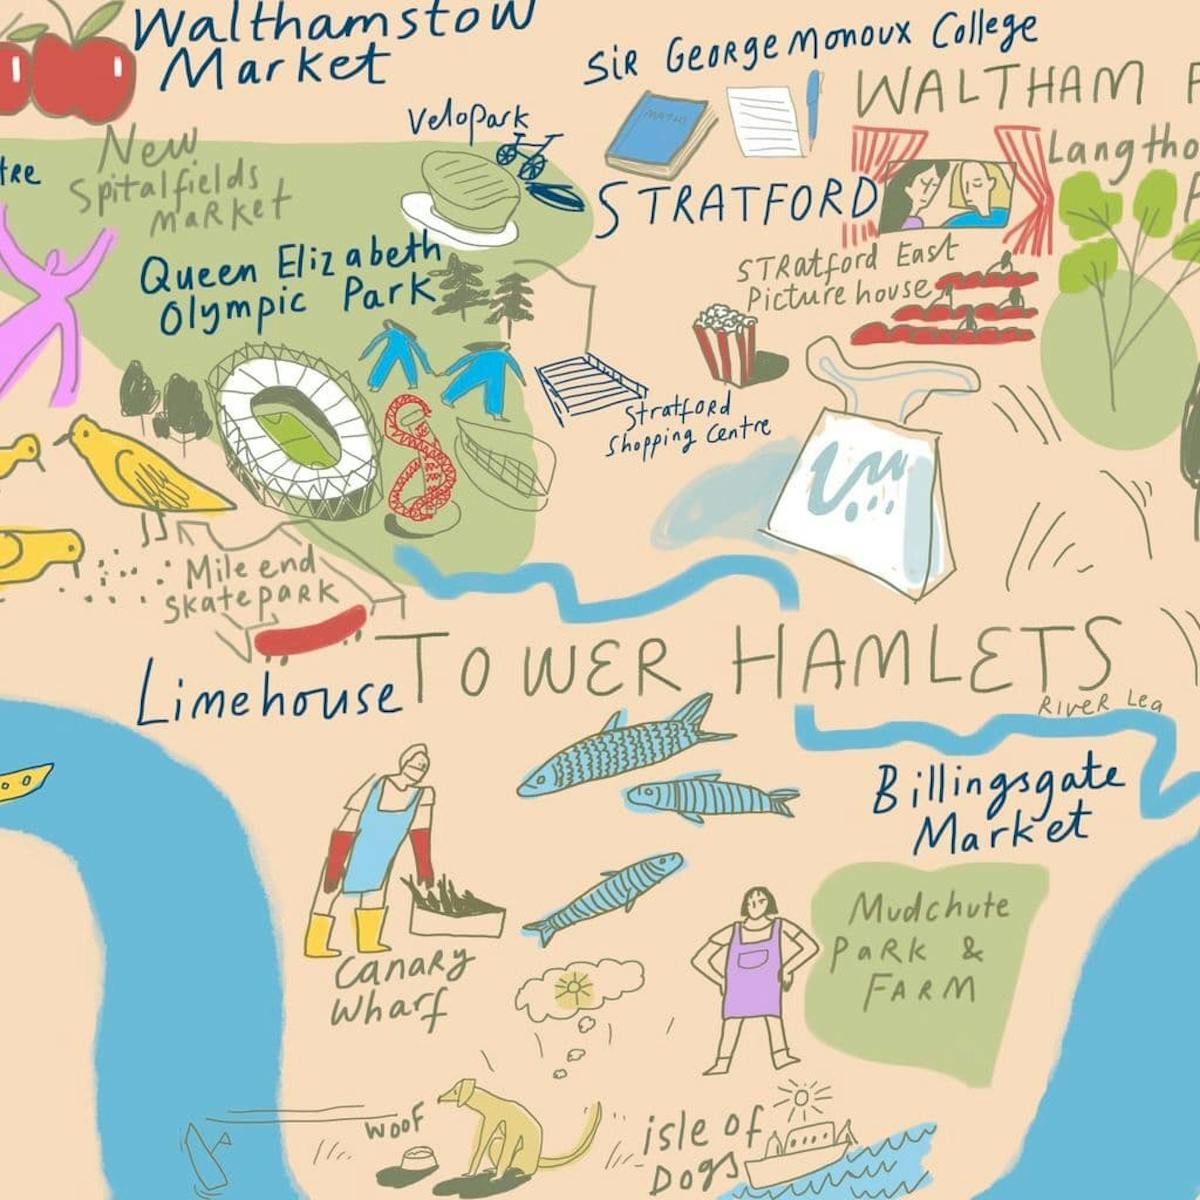 Walthamstow
Market
Sir George Monoux College
WALTHAM F
Velopark
MATHS
New
Spitalfields
Market
tre
Langtho
F
STRATFORD
Queen Elizabeth
Olympic Park
STRatford East
Picturehouse
Stratford
Shopping Centre
Mile end
Skatepark
TOWER HAMLETS
Limehouse
River Lea
Billingsgate
Market
Mudchute
Park &
Farm
Canary
Wharf
woof
isle of
Dogs